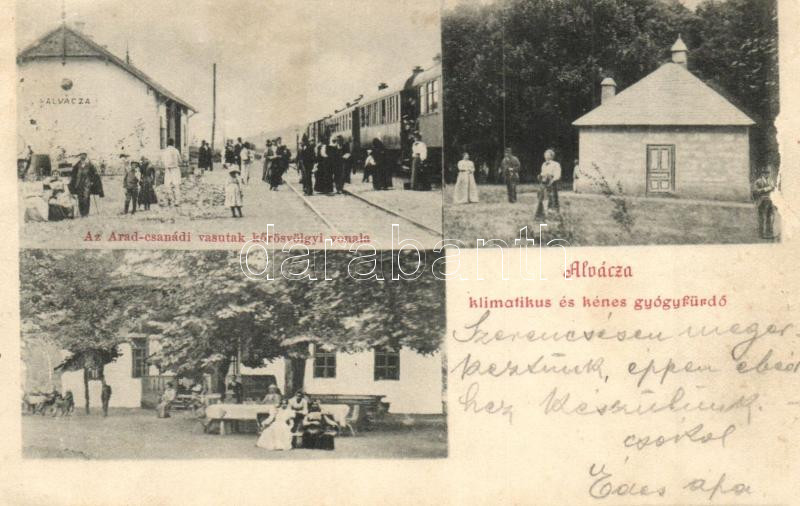 ALVÁCZA
Az Arad-csanádi vasutak kőrösvölgyi vonala
darabanth
Alvácza
klimatikus és kénes gyógyfürdő
Szerencsésen meger
keztünk, éppen ebéd
hez készülünk.
csókol
Édes apa